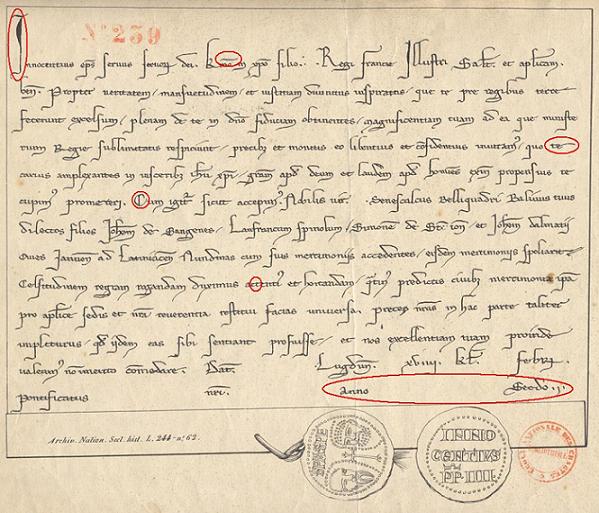 Nº 239
Innocentius eps servus servorz dei. Kmo in xpo filio. Regi Francie Illustri Salt. et aplicam
ben. Propter veritatem, mansuetudinem et iustitiam divinitus inspiratas, que te pre regibus terre
fecerunt excelsum, plenam de te in dno fiduciam obtinentes, magnificentiam tuam ad ea que
Regie sublimitatis respiciunt, precibz et monitis eo libentius et confidentius quo te
carius amplexantes in visceribz ihu xpi, gram apd deum et laudem apd hoies exin propensius te
cupim promereri. Cum igit sicut accepim Nobilis vir. Senescalcus Belliquadri Balivus tuus
dilectos filios Iohem de Gangenis, Lanfrancum Spinolum, Simone de et Iohem dalmatii
Cives Ianuen ad Nundinas cum suis mercimoniis accedentes, eisdem mercimoniis spoliarit
Celsitudinem regiam rogandam duximus attente et hortandam, predictis civibz mercimonia ipa
pro aplice sedis et nra reverentia restitui facias universa. preces nras in hac parte taliter
impleturus, qd iidem eas sibi sentiant profuisse, et nos excellentiam tuam proinde
valeam non immerito comendare. Dat. Lugdun. xviii. kl. Febrz.
Pontificatus nri. Anno Secdo. ii.
Archiv. Nation. Sect. hist. L. 244 - nº 62.
SPASPE
INNO
CENTIVS
PP·IIII·